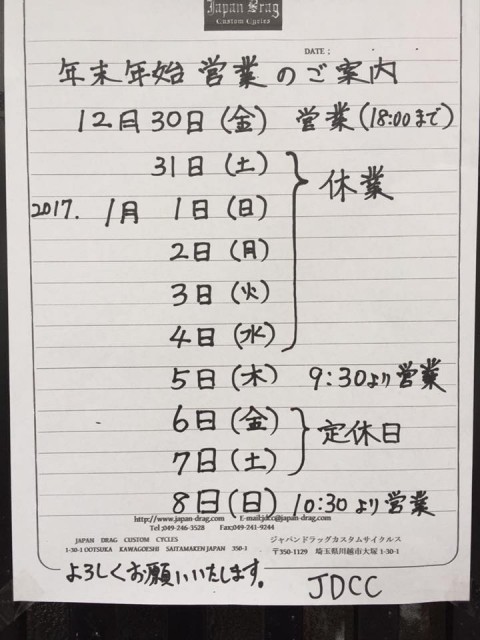 Japan Drag
Custom Cycles
DATE ;
年末年始 営業 のご案内
12月 30日 (金) 営業 (18:00まで)
31日 (土)
休業
2017. 1月 1日 (日)
2日 (月)
3日 (火)
4日 (水)
5日 (木) 9:30より営業
6日 (金)
定休日
7日 (土)
8日 (日) 10:30 より営業
http://www.japan-drag.com E-mail:jdcc@japan-drag.com
Tel ;049-246-3528 Fax;049-241-9244
JAPAN DRAG CUSTOM CYCLES ジャパンドラッグカスタムサイクルス
1-30-1 OOTSUKA KAWAGOESHI SAITAMAKEN JAPAN 350-1 〒350-1129 埼玉県川越市大塚 1-30-1
よろしくお願いいたします。 JDCC